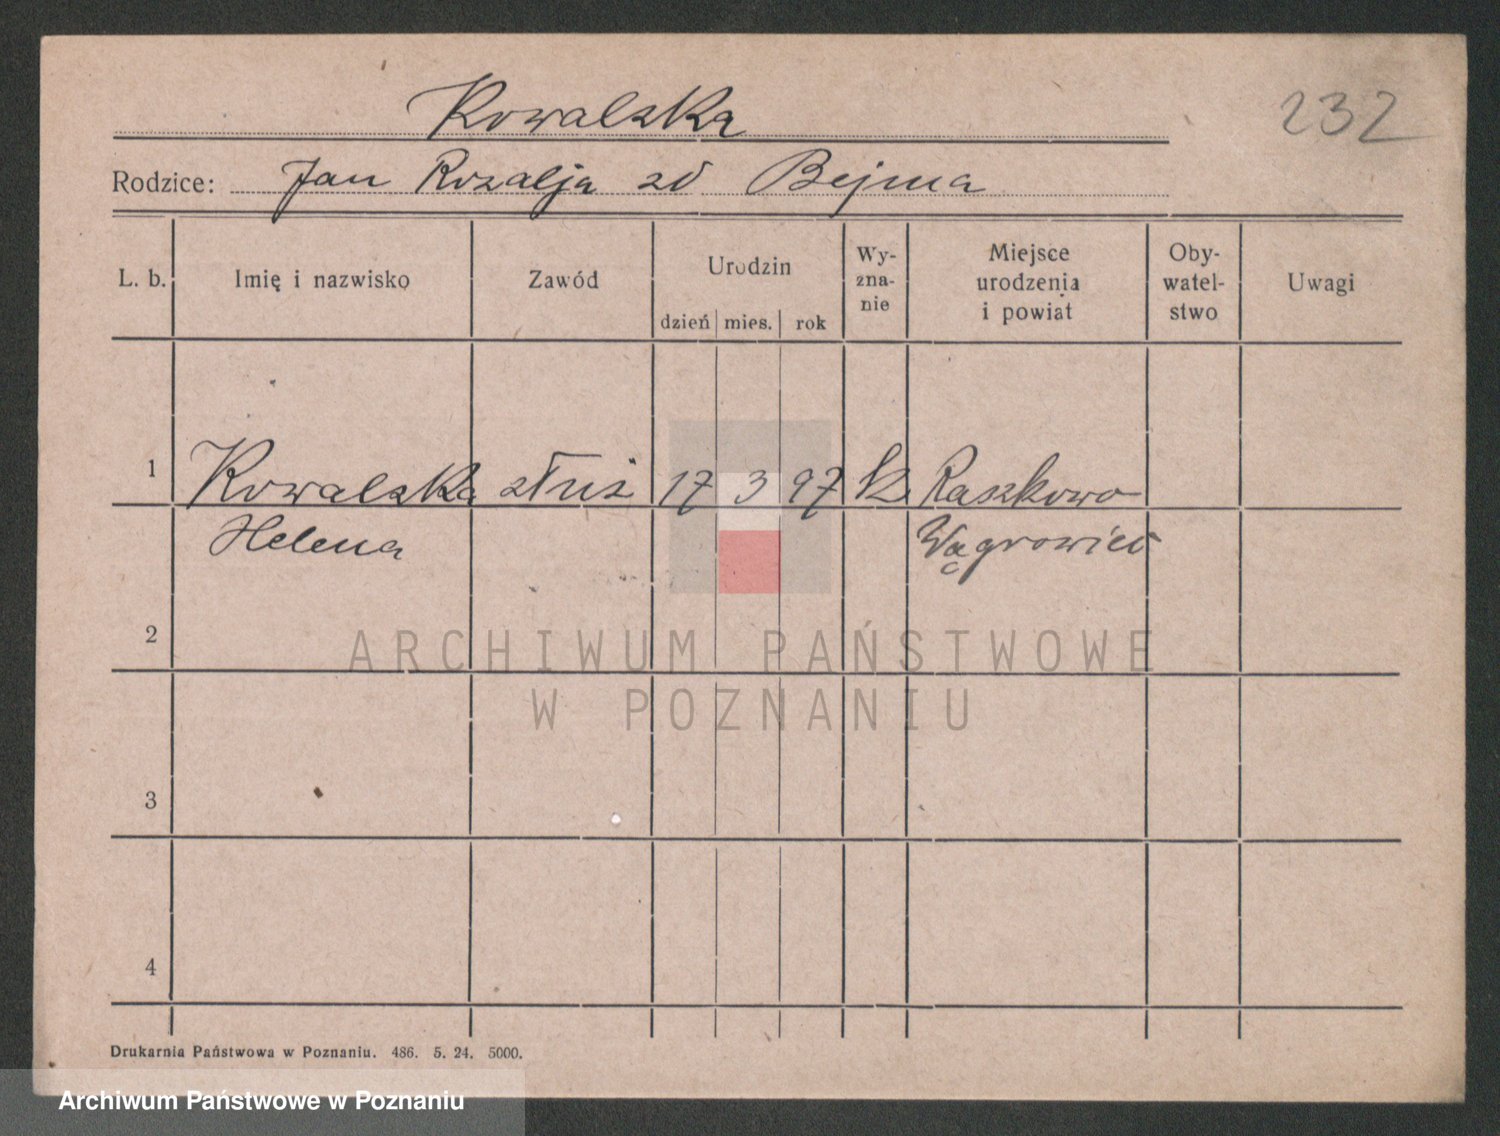 Kowalska
232
Rodzice: Jan Rozalja zd Bejma
L. b. Imię i nazwisko Zawód Urodzin dzień mies. rok Wy-zna-nie Miejsce urodzenia i powiat Oby-watel-stwo Uwagi
1 Kowalska służ 17 3 97 k. Raszkowo
Helena Wągrowiec
2
ARCHIWUM PAŃSTWOWE
W POZNANIU
3
4
Drukarnia Państwowa w Poznaniu. 486. 5. 24. 5000.
Archiwum Państwowe w Poznaniu